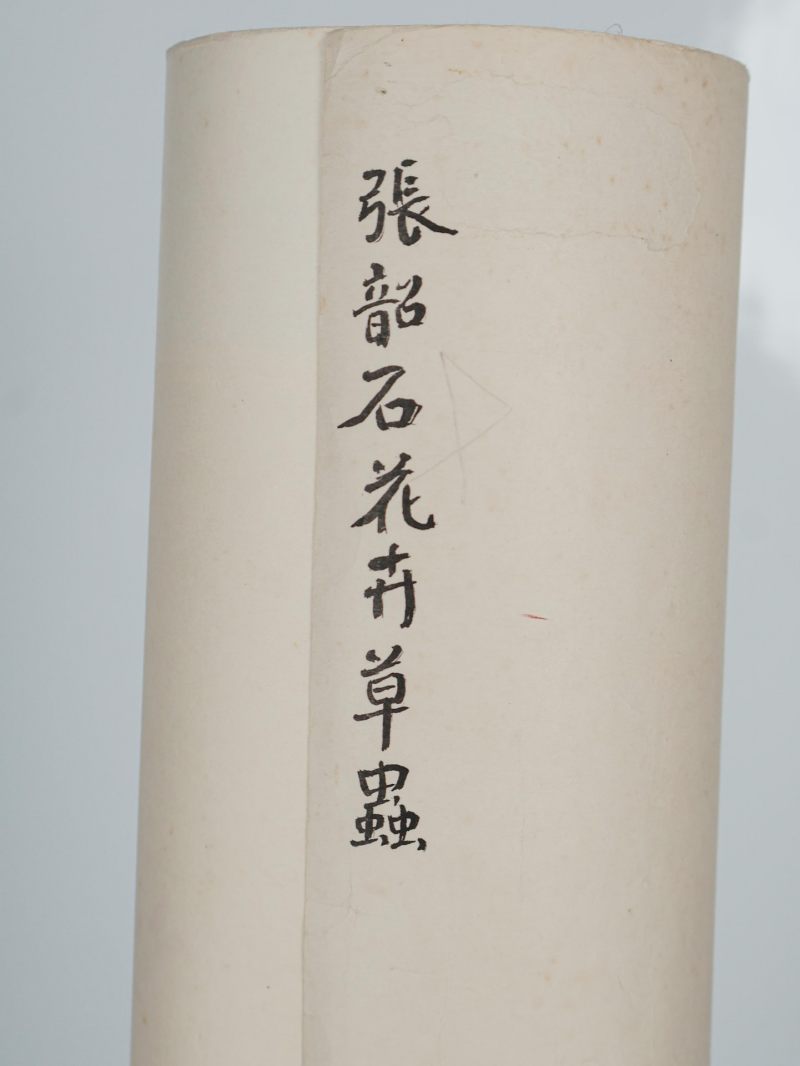 張韶石花卉草蟲